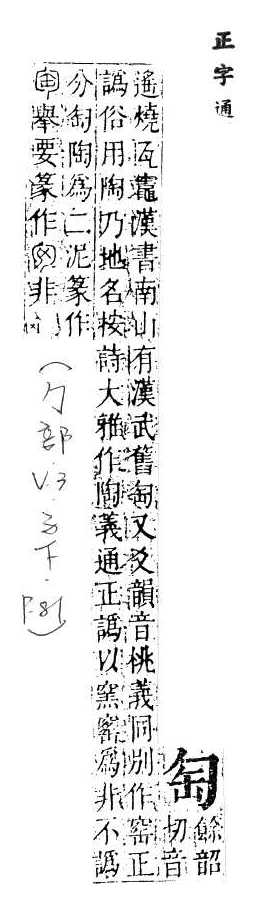 正字通
匋
餘韶
切音
遙燒瓦竈漢書南山有漢武舊匋又爻韻音桃義同別作窰正
譌俗用陶乃地名按詩大雅作陶義通正譌以窯窰爲非不譌
分匋陶爲二泥篆作
舉要篆作非
(勹部.V.3.子下.P.81)